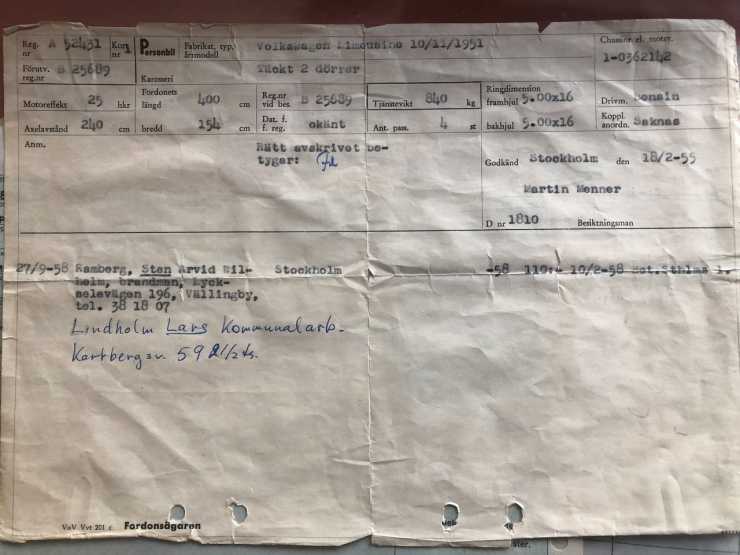 Reg. nr A 52431 Kort nr 1 Personbil Fabrikat, typ, årsmodell Volkswagen Limousine 10/11/1951 Chassinr el. motor.
Förutv. reg.nr B 25689 Karosseri Täckt 2 dörrar 1-0362142
Motoreffekt 25 hkr Fordonets längd 400 cm Reg.nr vid bes. B 25689 Tjänstevikt 840 kg Ringdimension framhjul 5.00x16 Drivm. bensin
Axelavstånd 240 cm bredd 154 cm Dat. f. f. reg. okänt Ant. pass. 4 st bakhjul 5.00x16 Koppl. anordn. Saknas
Anm. Rätt avskrivet be-
tygar:
Godkänd Stockholm den 18/2-55
Martin Menner
D nr 1810 Besiktningsman
27/9-58 Ramberg, Sten Arvid Wil- Stockholm -58 110:- 10/2-58 Mot.Sthlms l.
helm, brandman, Lyck-
selevägen 196, Vällingby,
tel. 38 18 07
Lindholm Lars Kommunalarb.
Kartbergsv. 59 2 1/2 ts.
VoV Vvt 201 c Fordonsägaren